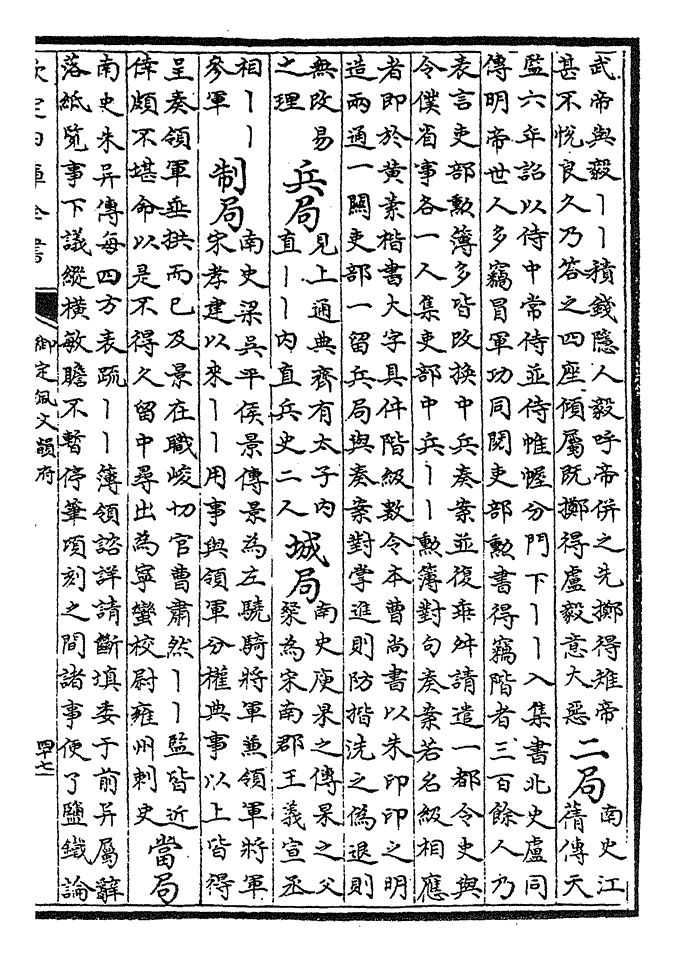 武帝與毅丨丨積錢隠人毅呼帝併之先擲得雉帝
甚不悅良久乃答之四座傾屬既擲得盧毅意大惡
二局
南史江
蒨傳天
監六年詔以侍中常侍並侍帷幄分門下丨丨入集書北史盧同
傳明帝世人多竊冒軍功同閱吏部勲書得竊階者三百餘人乃
表言吏部勲簿多皆改換中兵奏案並復乖舛請遣一都令史與
令僕省事各一人集吏部中兵丨丨勲簿對句奏案若名級相應
者即於黄素楷書大字具件階級數令本曹尚書以朱印印之明
造兩通一關吏部一留兵局與奏案對掌進則防揩洗之偽退則
無改易
之理
兵局
見上通典齊有太子内
直丨丨内直兵史二人
城局
南史庾杲之傳杲之父
粲為宋南郡王義宣丞
相丨丨
參軍
制局
南史梁吳平侯景傳景為左驍騎將軍兼領軍將軍
宋孝建以來丨丨用事與領軍分權典事以上皆得
呈奏領軍垂拱而已及景在職峻切官曹肅然丨丨監皆近
倖頗不堪命以是不得久留中尋出為寧蠻校尉雍州刺史
當局
南史朱异傳每四方表疏丨丨簿領諮詳請斷填委于前异屬辭
落紙覧事下議縱横敏贍不暫停筆頃刻之間諸事便了鹽鐵論
欽定四庫全書
御定佩文韻府
四十七